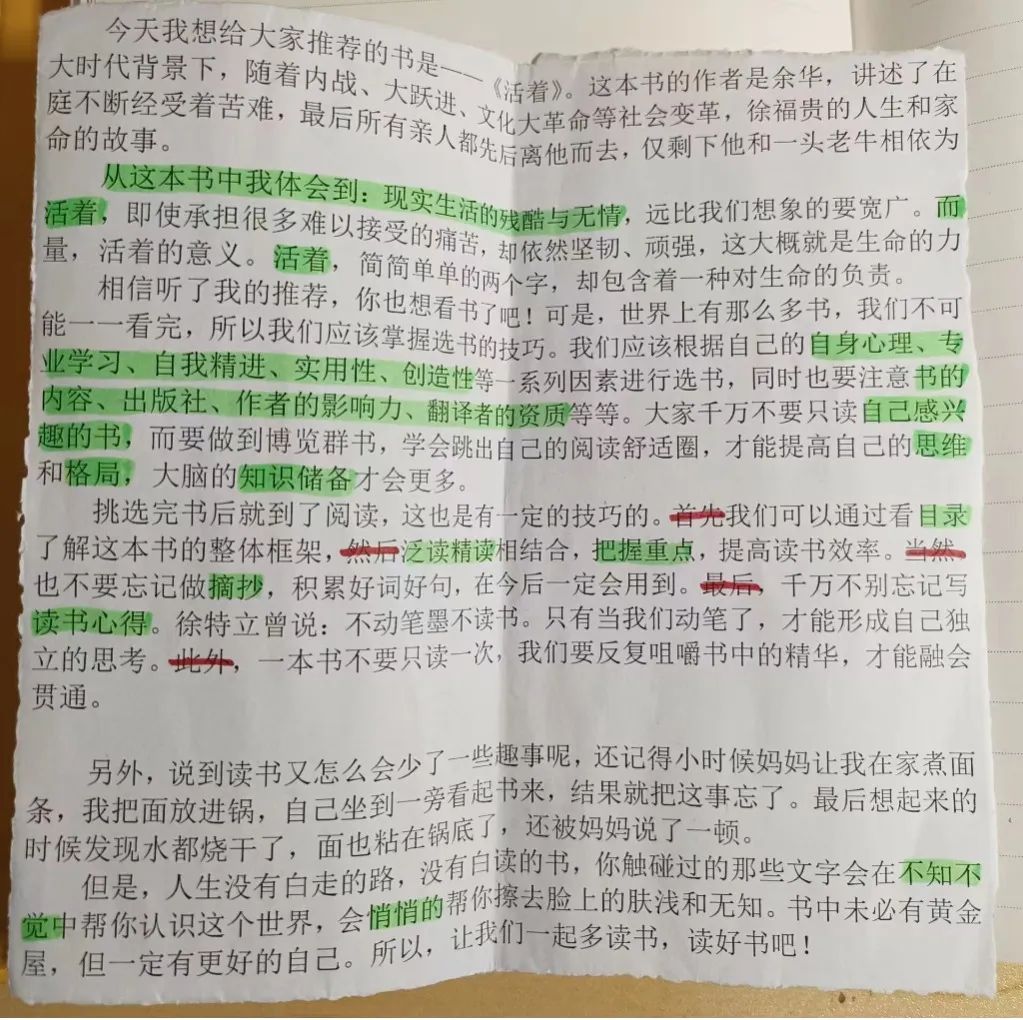 今天我想给大家推荐的书是——《活着》。这本书的作者是余华，讲述了在
大时代背景下，随着内战、大跃进、文化大革命等社会变革，徐福贵的人生和家
庭不断经受着苦难，最后所有亲人都先后离他而去，仅剩下他和一头老牛相依为
命的故事。
从这本书中我体会到：现实生活的残酷与无情，远比我们想象的要宽广。而
活着，即使承担很多难以接受的痛苦，却依然坚韧、顽强，这大概就是生命的力
量，活着的意义。活着，简简单单的两个字，却包含着一种对生命的负责。
相信听了我的推荐，你也想看书了吧！可是，世界上有那么多书，我们不可
能一一看完，所以我们应该掌握选书的技巧。我们应该根据自己的自身心理、专
业学习、自我精进、实用性、创造性等一系列因素进行选书，同时也要注意书的
内容、出版社、作者的影响力、翻译者的资质等等。大家千万不要只读自己感兴
趣的书，而要做到博览群书，学会跳出自己的阅读舒适圈，才能提高自己的思维
和格局，大脑的知识储备才会更多。
挑选完书后就到了阅读，这也是有一定的技巧的。首先我们可以通过看目录
了解这本书的整体框架，然后泛读精读相结合，把握重点，提高读书效率。当然
也不要忘记做摘抄，积累好词好句，在今后一定会用到。最后，千万不别忘记写
读书心得。徐特立曾说：不动笔墨不读书。只有当我们动笔了，才能形成自己独
立的思考。此外，一本书不要只读一次，我们要反复咀嚼书中的精华，才能融会
贯通。
另外，说到读书又怎么会少了一些趣事呢，还记得小时候妈妈让我在家煮面
条，我把面放进锅，自己坐到一旁看起书来，结果就把这事忘了。最后想起来的
时候发现水都烧干了，面也粘在锅底了，还被妈妈说了一顿。
但是，人生没有白走的路，没有白读的书，你触碰过的那些文字会在不知不
觉中帮你认识这个世界，会悄悄的帮你擦去脸上的肤浅和无知。书中未必有黄金
屋，但一定有更好的自己。所以，让我们一起多读书，读好书吧！